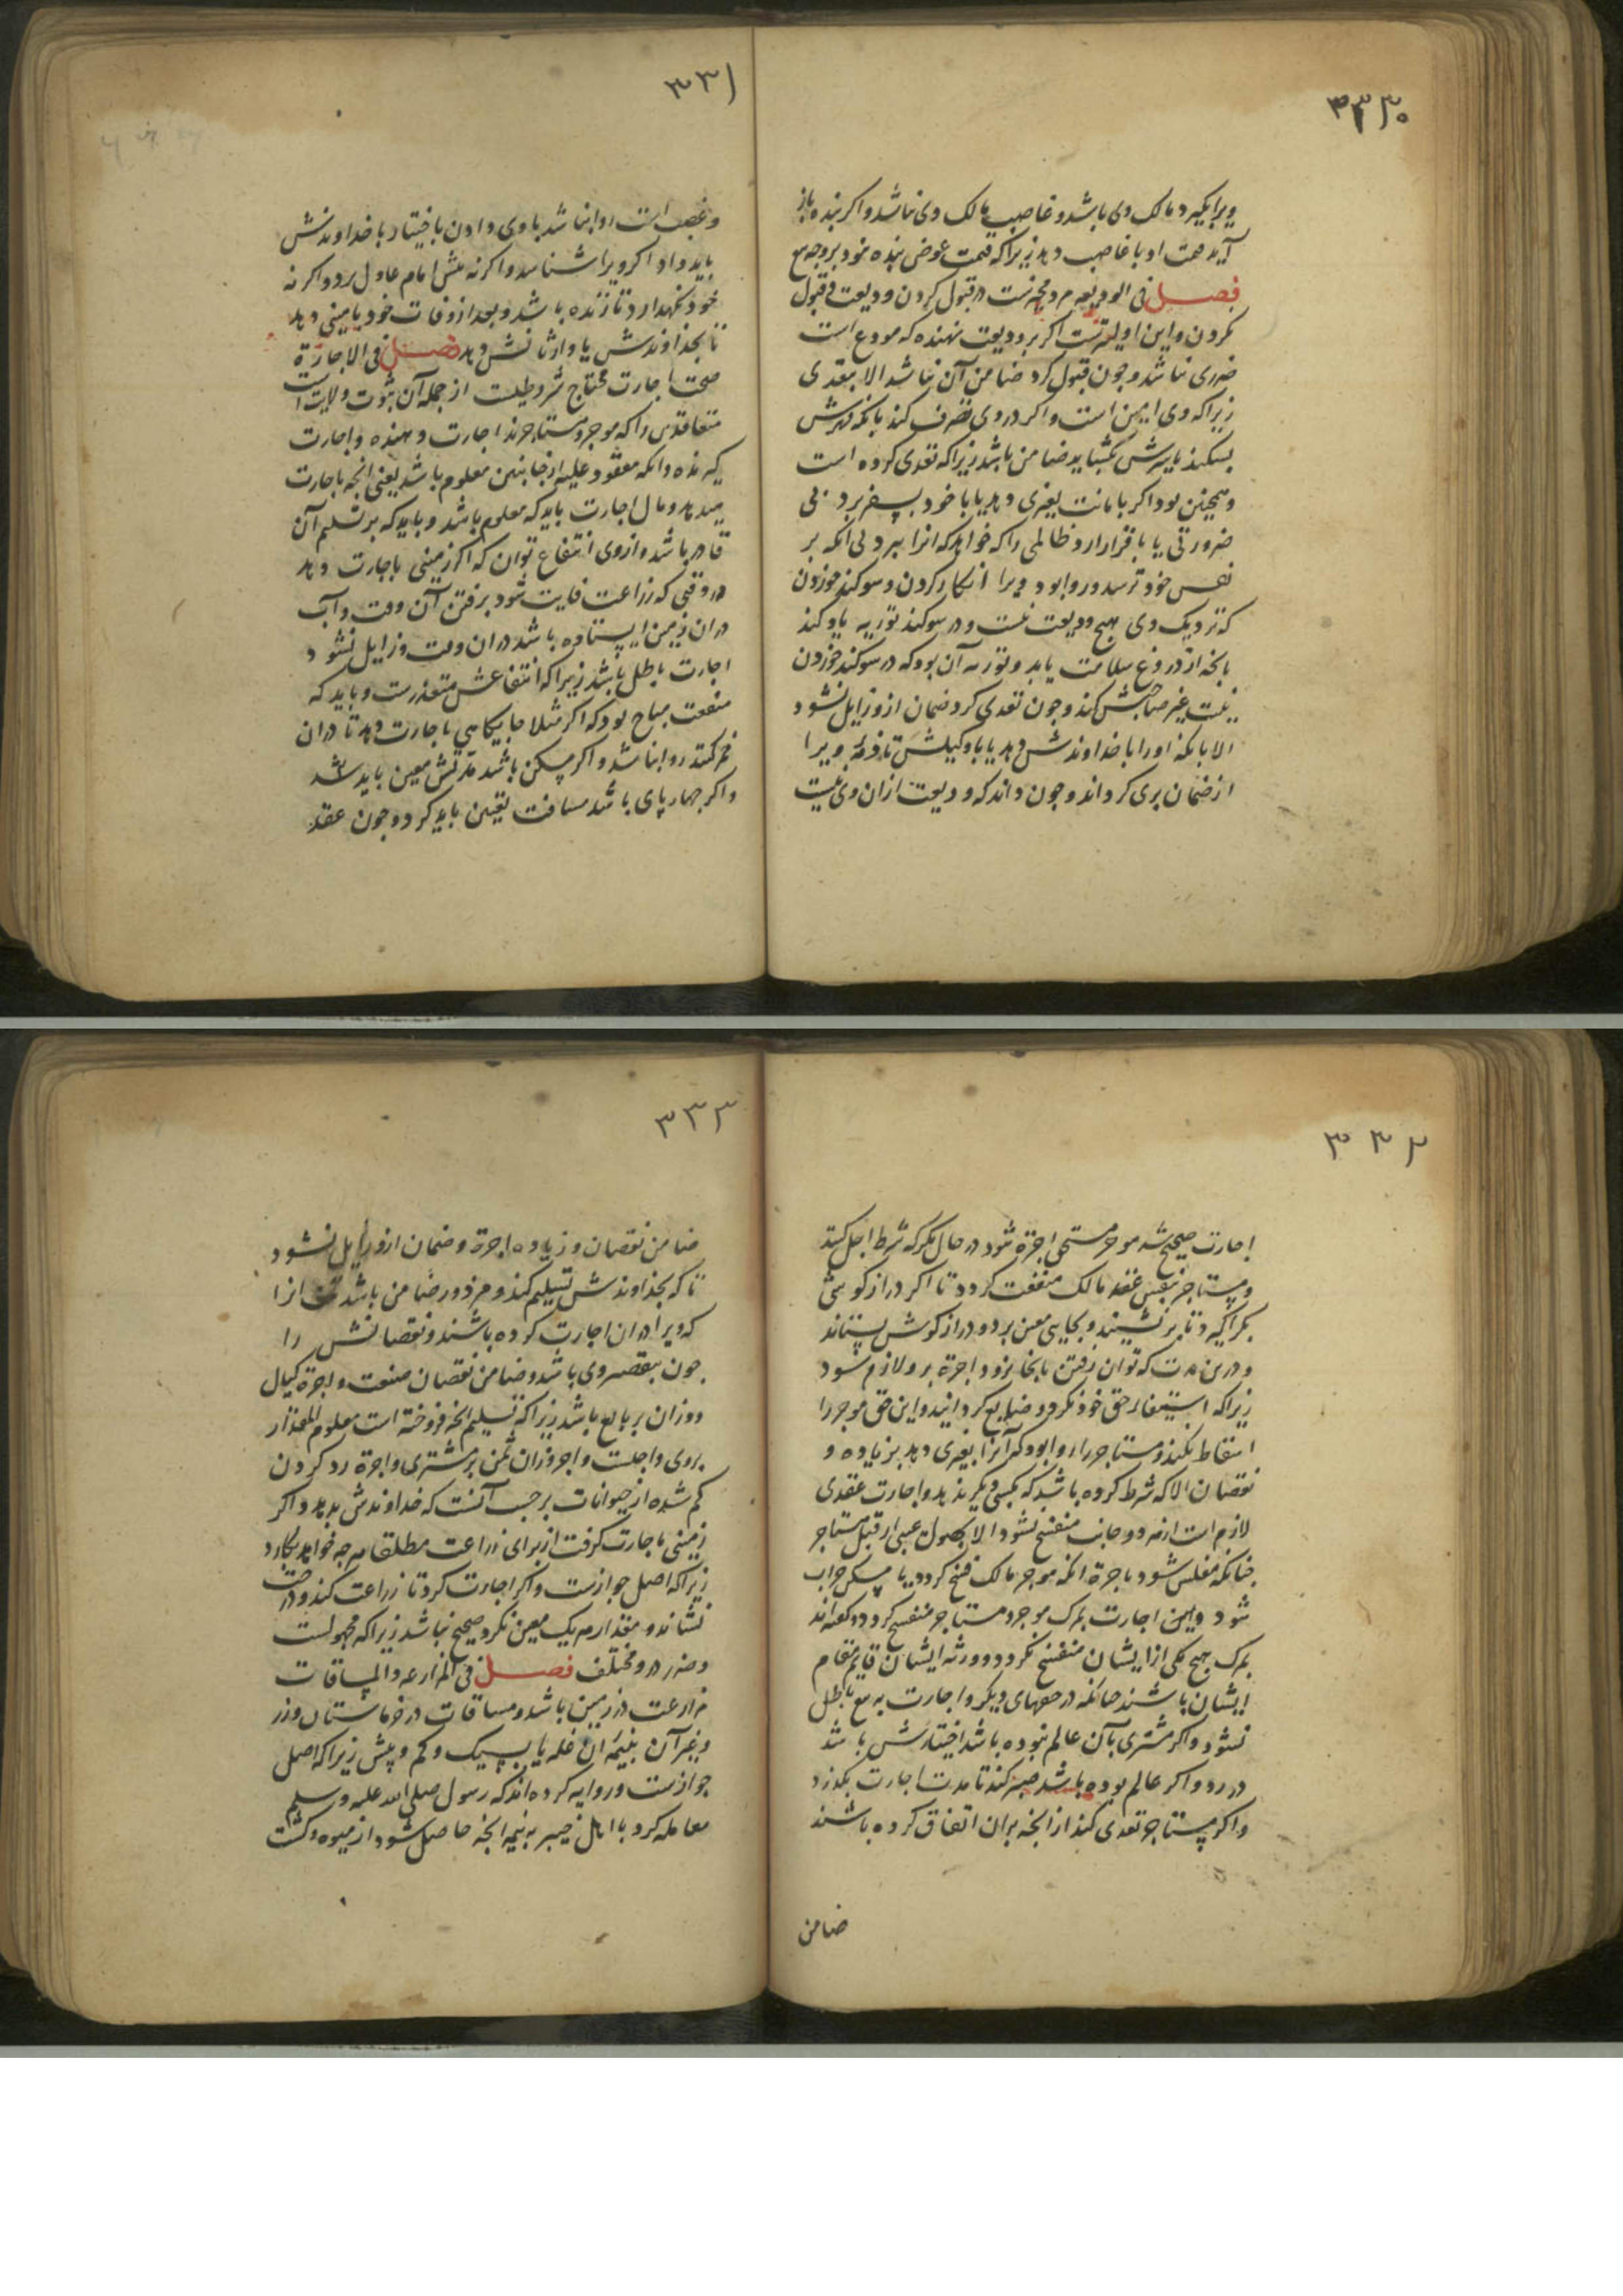 ۳۳۰
ویرا بگیرد مالک وی باشد و غاصب مالک وی نباشد و اکر بنده باز
آید قیمت او با غاصب دهد زیرا که قیمت عوض بنده بود بر وجه بیع
فصل فی الودیعه مرد مخیرست در قبول کردن ودیعت و قبول
نکردن و این اولیترست اکر بر ودیعت نهنده که مودع است
ضرری نباشد و جون قبول کرد ضامن آن نباشد الا بتعدی
زیرا که وی امین است و اکر در وی تصرف کند بانکه مهرش
بشکند یا سرش بکشاید ضامن باشد زیرا که تعدی کرده است
و همجنین بود اکر بامانت بغیری دهد یا با خود بسفر برد بی
ضرورتی یا باقرار ارد ظالمی را که خواهد که انرا ببرد بی انکه بر
نفس خود ترسد و روا بود ویرا انکار کردن و سوکند خوردن
که نزدیک وی هیج ودیعت نیست و در سوکند توریه یاد کند
بانجه از دروغ سلامت یابد و توریه آن بود که در سوکند خوردن
نیت غیر صاحبش کند و جون تعدی کرد ضمان ازو زایل نشود
الا بانکه او را با خداوندش دهد یا با وکیلش تا ذمه ویرا
از ضمان بری کرداند و جون داند که ودیعت ازان وی نیست
۳۳۱
و غصب است روا نباشد با وی دادن باختیار با خداوندش
باید داد اکر ویرا شناسد و اکر نه پیش امام عادل برد و اکر نه
خود نکهدارد تا زنده باشد و بعد از وفات خود بامینی دهد
تا بخداوندش یا وارثانش دهد فصل فی الاجارة
صحت اجارت محتاج شروطیست از جمله آن ثبوت ولایت است
متعاقدین را که موجر و مستاجرند اجارت دهنده و اجارت
کیرنده و انکه معقود علیه از جانبین معلوم باشد یعنی انجه باجارت
میدهد و مال اجارت باید که معلوم باشد و باید که بر تسلیم آن
قادر باشد و از وی انتفاع توان که اکر زمینی باجارت دهد
در وقتی که زراعت فایت شود برفتن آن وقت و آب
در ان زمین ایستاده باشد در ان وقت و زایل نشود
اجارت باطل باشد زیرا که انتفاعش متعذرست و باید که
منفعت مباح بود که اکر مثلا جایکاهی باجارت دهد تا در ان
خمر کنند روا نباشد و اکر مسکن باشد مدتش معین باید شد
و اکر جهار پای باشد مسافت تعیین باید کرد و جون عقد
۳۳۲
اجارت صحیح شد موجر مستحق اجرة شود در حال مکر که شرط اجل کنند
و مستاجر بنفس عقد مالک منفعت کردد تا اکر دراز کوشی
بکرا کیرد تا بر نشیند و بجایی معین برد و دراز کوش بستاند
و درین مدت که توان رفتن بانجا نرود اجرة برو لازم شود
زیرا که استیفای حق خود نکرد و ضایع کردانید و این حق موجر را
اسقاط نکند و مستاجر را روا بود که آنرا بغیری دهد بزیاده و
نقصان الا که شرط کرده باشد که بکسی دیکر ندهد و اجارت عقدی
لازم است از هر دو جانب منفسخ نشود الا بحصول عیبی از قبل مستاجر
جنانکه مفلس شود باجرة انکه موجر مالک فسخ کردد یا مسکن خراب
شود و این اجارت بمرک موجر و مستاجر منفسخ کردد و کفته‌اند
بمرک هیج یکی از ایشان منفسخ نکردد و ورثه ایشان قایم مقام
ایشان باشند جنانکه در حقهای دیکر و اجارت به بیع باطل
نشود و اکر مشتری بآن عالم نبوده باشد اختیارش باشد
در رد و اکر عالم بوده باشد صبر کند تا مدت اجارت بکذرد
و اکر مستاجر تعدی کند از انجه بران اتفاق کرده باشند
ضامن
۳۳۳
ضامن نقصان و زیاده اجرة و ضمان ازو زایل نشود
تا که بخداوندش تسلیم کند و مزدور ضامن باشد انرا
که ویرا در ان اجارت کرده باشند و نقصانش را
جون بتقصیر وی باشد و ضامن نقصان صنعت و اجرة کیال
و وزان بر بایع باشد زیرا که تسلیم انجه فروخته است معلوم المقدار
بر وی واجبست و اجر وزان ثمن بر مشتری و اجرة رد کردن
کم شده از حیوانات بر حسب آنست که خداوندش بدهد و اکر
زمینی باجارت کرفت از برای زراعت مطلقا هر جه خواهد بکارد
زیرا که اصل جوازست و اکر اجارت کرد تا زراعت کند و درخت
نشاند و مقدار هر یک معین نکرد صحیح نباشد زیرا که مجهولست
و ضرر در و مختلف فصل فی المزارعه و المساقات
مزارعت در زمین باشد و مساقات در خرماستان و رز
و غیر آن بنیمه ان غله یا بسیک و کم و بیش زیرا که اصل
جوازست و روایه کرده‌اند که رسول صلی الله علیه و سلم
معامله کرد با اهل خیبر به نیمه انجه حاصل شود از میوه و کشت